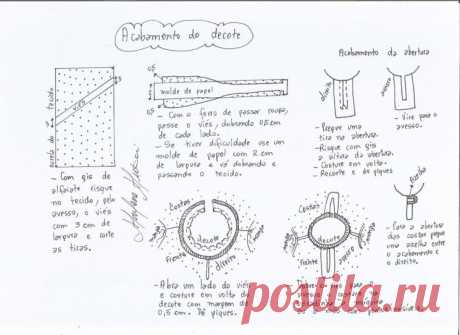 Acabamento do decote
Acabamento da abertura
0,5
0,5
3
3
tecido
ourela do
molde de papel
direito
avesso
- Com o ferro de passar roupa,
passe o viés, dobrando 0,5 cm
de cada lado.
- Se tiver dificuldade use um
molde de papel com 2 cm
de largura e vá dobrando e
passando o tecido.
- Com giz de
alfaiate risque
no tecido, pelo
avesso, o viés
com 3 cm de
largura e corte
as tiras.
- Vire para o
avesso.
- Prepare uma
tira na abertura.
- Risque com giz
a altura da abertura.
- Costure em volta.
- Recorte e dê piques.
Costas
manga
decote
manga
Frente
direito
Costas
manga
decote
manga
Frente
avesso
- Para a abertura
das costas pegue
uma azelha entre
o acabamento e
o direito.
- Abra um lado do viés
e costure em volta do
decote com margem de
0,5 cm. Dê piques.
postila.ru